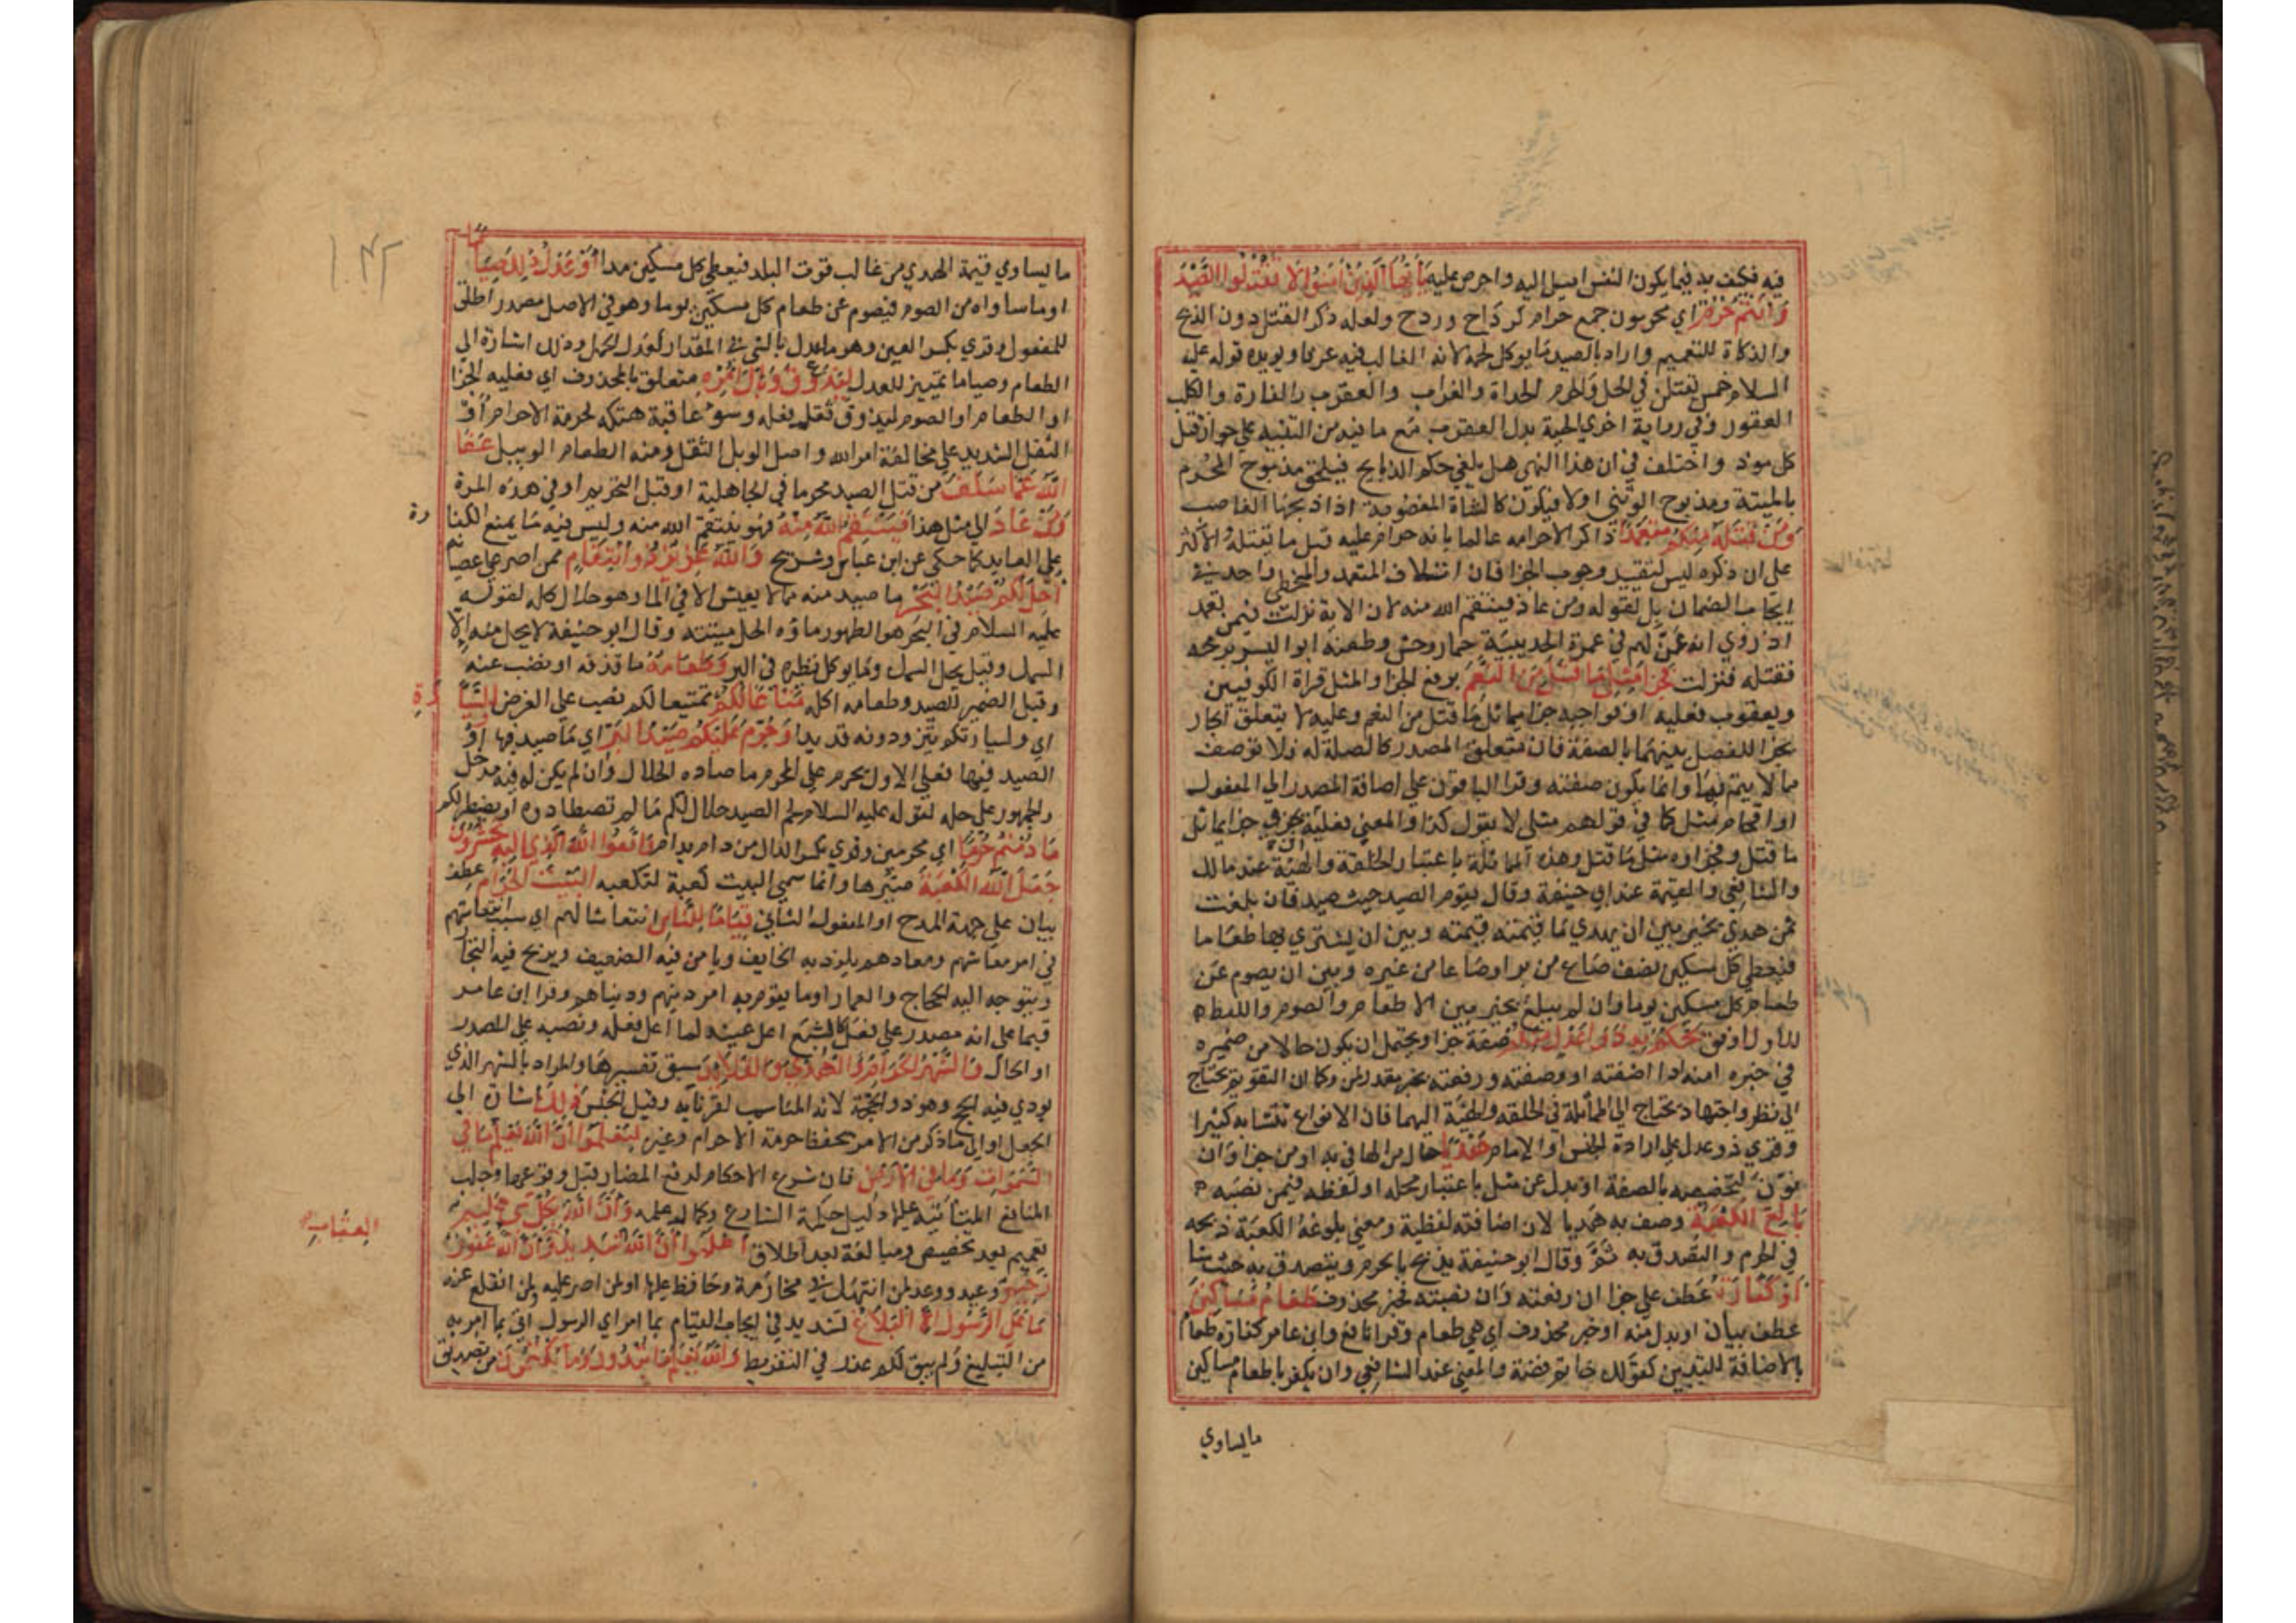 فيه فكيف به فيما يكون النفس اميل اليه واحرص عليه يَأَيُّهَا الَّذِينَ آمَنُوا لَا تَقْتُلُوا الصَّيْدَ
وَأَنْتُمْ حُرُمٌ اي محرمون جمع حرام كرداح وردح ولعله ذكر القتل دون الذبح
والذكاة للتعميم واراد بالصيد ما يوكل لحمه لانه الغالب فيه عرفا ويويده قوله عليه
السلام خمس يقتلن في الحل والحرم الحداة والغراب والعقرب والفارة والكلب
العقور وفي رواية اخري الحية بدل العقرب مع ما فيه من التنبيه علي جواز قتل
كل موذ واختلف في ان هذا النهي هل يلغي حكم الذبايح فيلحق مذبوح المحرم
بالميتة ومذبوح الوثني اولا فيكون كالشاة المغصوبة اذا ذبحها الغاصب
وَمَنْ قَتَلَهُ مِنْكُمْ مُتَعَمِّدًا ذاكرا لاحرامه عالما بانه حرام عليه قتل ما يقتله الاكثر
علي ان ذكره ليس لتقييد وجوب الجزا فان اتلاف المتعمد والمخطي واحد في
ايجاب الضمان بل لقوله ومن عاد فينتقم الله منه لان الاية نزلت فيمن تعمد
اذ روي انه عن لهم في عمرة الحديبية حمار وحش وطعنه ابو اليسر برمحه
فقتله فنزلت فَجَزَاءٌ مِثْلُ مَا قَتَلَ مِنَ النَّعَمِ برفع الجزا والمثل قراة الكوفيين
ويعقوب فعليه او فواجبه جزا يماثل ما قتل من النعم وعليه لا يتعلق الجار
بجزا للفصل بينهما بالصفة فان متعلق المصدر كالصلة له فلا توصف
ما لا يتم بها وانما يكون صفته وقرا الباقون علي اضافة المصدر الي المفعول
او اقحام مثل كما في قولهم مثلي لا يقول كذا والمعني فعليه ان يجزي جزا يماثل
ما قتل وفجزاوه مثل ما قتل وهذه المماثلة باعتبار الخلقة والهيئة عند مالك
والشافعي والقيمة عند ابي حنيفة وقال يقوم الصيد حيث صيد فان بلغت
ثمن هدي تخير بين ان يهدي ما قيمته قيمته وبين ان يشتري بها طعاما
فيعطي كل مسكين نصف صاع من بر اوصاعا من غيره وبين ان يصوم عن
طعام كل مسكين يوما وان لم يبلغ يخير بين الاطعام والصوم واللفظ
للاول اوفق يَحْكُمُ بِهِ ذَوَا عَدْلٍ مِنْكُمْ صفة جزا ويحتمل ان يكون حالا من ضميره
في خبره او منه اذا اضفته او وصفته ورفعته بخبر مقدر لمن وكما ان التقويم يحتاج
الي نظر واجتهاد يحتاج الي المماثلة في الخلقة والهيئة اليهما فان الانواع تتشابه كثيرا
وقري ذو عدل علي ارادة الجنس او الامام هَدْيًا حال من الها في به او من جزا وان
نون لتخصصه بالصفة او بدل عن مثل باعتبار محله او لفظه فيمن نصبه
بَالِغَ الْكَعْبَةِ وصف به هديا لان اضافته لفظية ومعني بلوغه الكعبة ذبحه
في الحرم والتصدق به ثم وقال ابو حنيفة يذبح بالحرم ويتصدق به حيث شا
أَوْ كَفَّارَةٌ عطف علي جزا ان رفعته وان نصبته فخبر محذوف طَعَامُ مَسَاكِينَ
عطف بيان او بدل منه او خبر محذوف اي هي طعام وقرا نافع وابن عامر كفارة طعام
بالاضافة للتبيين كقولك خاتم فضة والمعني عند الشافعي وان يكفر باطعام مساكين
مايساوي
ما يساوي قيمة الهدي من غالب قوت البلد فيعطي كل مسكين مدا أَوْ عَدْلُ ذَلِكَ صِيَامًا
او ما ساواه من الصوم فيصوم عن طعام كل مسكين يوما وهو في الاصل مصدر اطلق
للمفعول وقري بكسر العين وهو ما عدل بالشي في المقدار كعدل الحمل وذلك اشارة الي
الطعام وصياما تمييز للعدل لِيَذُوقَ وَبَالَ أَمْرِهِ متعلق بالمحذوف اي فعليه الجزا
او الطعام او الصوم ليذوق ثقل فعله وسوء عاقبة هتكه لحرمة الاحرام أو
الثقل الشديد علي مخالفة امر الله واصل الوبل الثقل ومنه الطعام الوبيل عَفَا
اللَّهُ عَمَّا سَلَفَ من قتل الصيد محرما في الجاهلية او قبل التحريم او في هذه المرة
وَمَنْ عَادَ الي مثل هذا فَيَنْتَقِمُ اللَّهُ مِنْهُ فهو ينتقم الله منه وليس فيه ما يمنع الكفا
رة
علي العايد كما حكي عن ابن عباس وشريح وَاللَّهُ عَزِيزٌ ذُو انْتِقَامٍ ممن اصر علي عصيانه
أُحِلَّ لَكُمْ صَيْدُ الْبَحْرِ ما صيد منه مما لا يعيش الا في الما وهو حلال كله لقوله
عليه السلام في البحر هو الطهور ماوه الحل ميتته وقال ابو حنيفة لا يحل منه الا
السمك وقيل يحل السمك وما يوكل نظيره في البر وَطَعَامُهُ ما قذفه او نضب عنه
وقيل الضمير للصيد وطعامه اكله مَتَاعًا لَكُمْ تمتيعا لكم نصب علي الغرض وَلِلسَّيَّا
رَةِ
اي ولسيارتكم يتزودونه قديدا وَحُرِّمَ عَلَيْكُمْ صَيْدُ الْبَرِّ اي ما صيد فيها او
الصيد فيها فعلي الاول يحرم علي المحرم ما صاده الحلال وان لم يكن له فيه مدخل
والجمهور علي حله لقوله عليه السلام لحم الصيد حلال لكم ما لم تصطادوه او يصطد لكم
مَا دُمْتُمْ حُرُمًا اي محرمين وقري بكسر الدال من دام يدام وَاتَّقُوا اللَّهَ الَّذِي إِلَيْهِ تُحْشَرُونَ
جَعَلَ اللَّهُ الْكَعْبَةَ صيرها وانما سمي البيت كعبة لتكعبه الْبَيْتَ الْحَرَامَ عطف
بيان علي جهة المدح او المفعول الثاني قِيَامًا لِلنَّاسِ انتعاشا لهم اي سبب انتعاشهم
في امر معاشهم ومعادهم يلوذ به الخايف ويامن فيه الضعيف ويربح فيه التجا
ويتوجه اليه الحجاج والعمار او ما يقوم به امر دينهم ودنياهم وقرا ابن عامر
قيما علي انه مصدر علي فعل كالشبع اعل عينه لما اعل فعله ونصبه علي المصدر
او الحال وَالشَّهْرَ الْحَرَامَ وَالْهَدْيَ وَالْقَلَائِدَ سبق تفسيرها والمراد بالشهر الذي
يودي فيه الحج وهو ذو الحجة لانه المناسب لقرنايه وقيل الجنس ذَلِكَ اشارة الي
الجعل او الي ما ذكر من الامر بحفظ حرمة الاحرام وغيره لِتَعْلَمُوا أَنَّ اللَّهَ يَعْلَمُ مَا فِي
السَّمَوَاتِ وَمَا فِي الْأَرْضِ فان شرع الاحكام لدفع المضار قبل وقوعها وجلب
المنافع المترتبة عليها دليل حكمة الشارع وكمال علمه وَأَنَّ اللَّهَ بِكُلِّ شَيْءٍ عَلِيمٌ
تعميم بعد تخصيص ومبالغة بعد اطلاق اعْلَمُوا أَنَّ اللَّهَ شَدِيدُ وَأَنَّ اللَّهَ غَفُورٌ
العِقَابِ
رَحِيمٌ وعيد ووعد لمن انتهك محارمه وحافظ عليها او لمن اصر عليه ولمن انقلع عنه
مَا عَلَى الرَّسُولِ إِلَّا الْبَلَاغُ تشديد في ايجاب القيام بما امر اي الرسول اتي بما امر به
من التبليغ ولم يبق لكم عذر في التفريط وَاللَّهُ يَعْلَمُ مَا تُبْدُونَ وَمَا تَكْتُمُونَ من تصديق